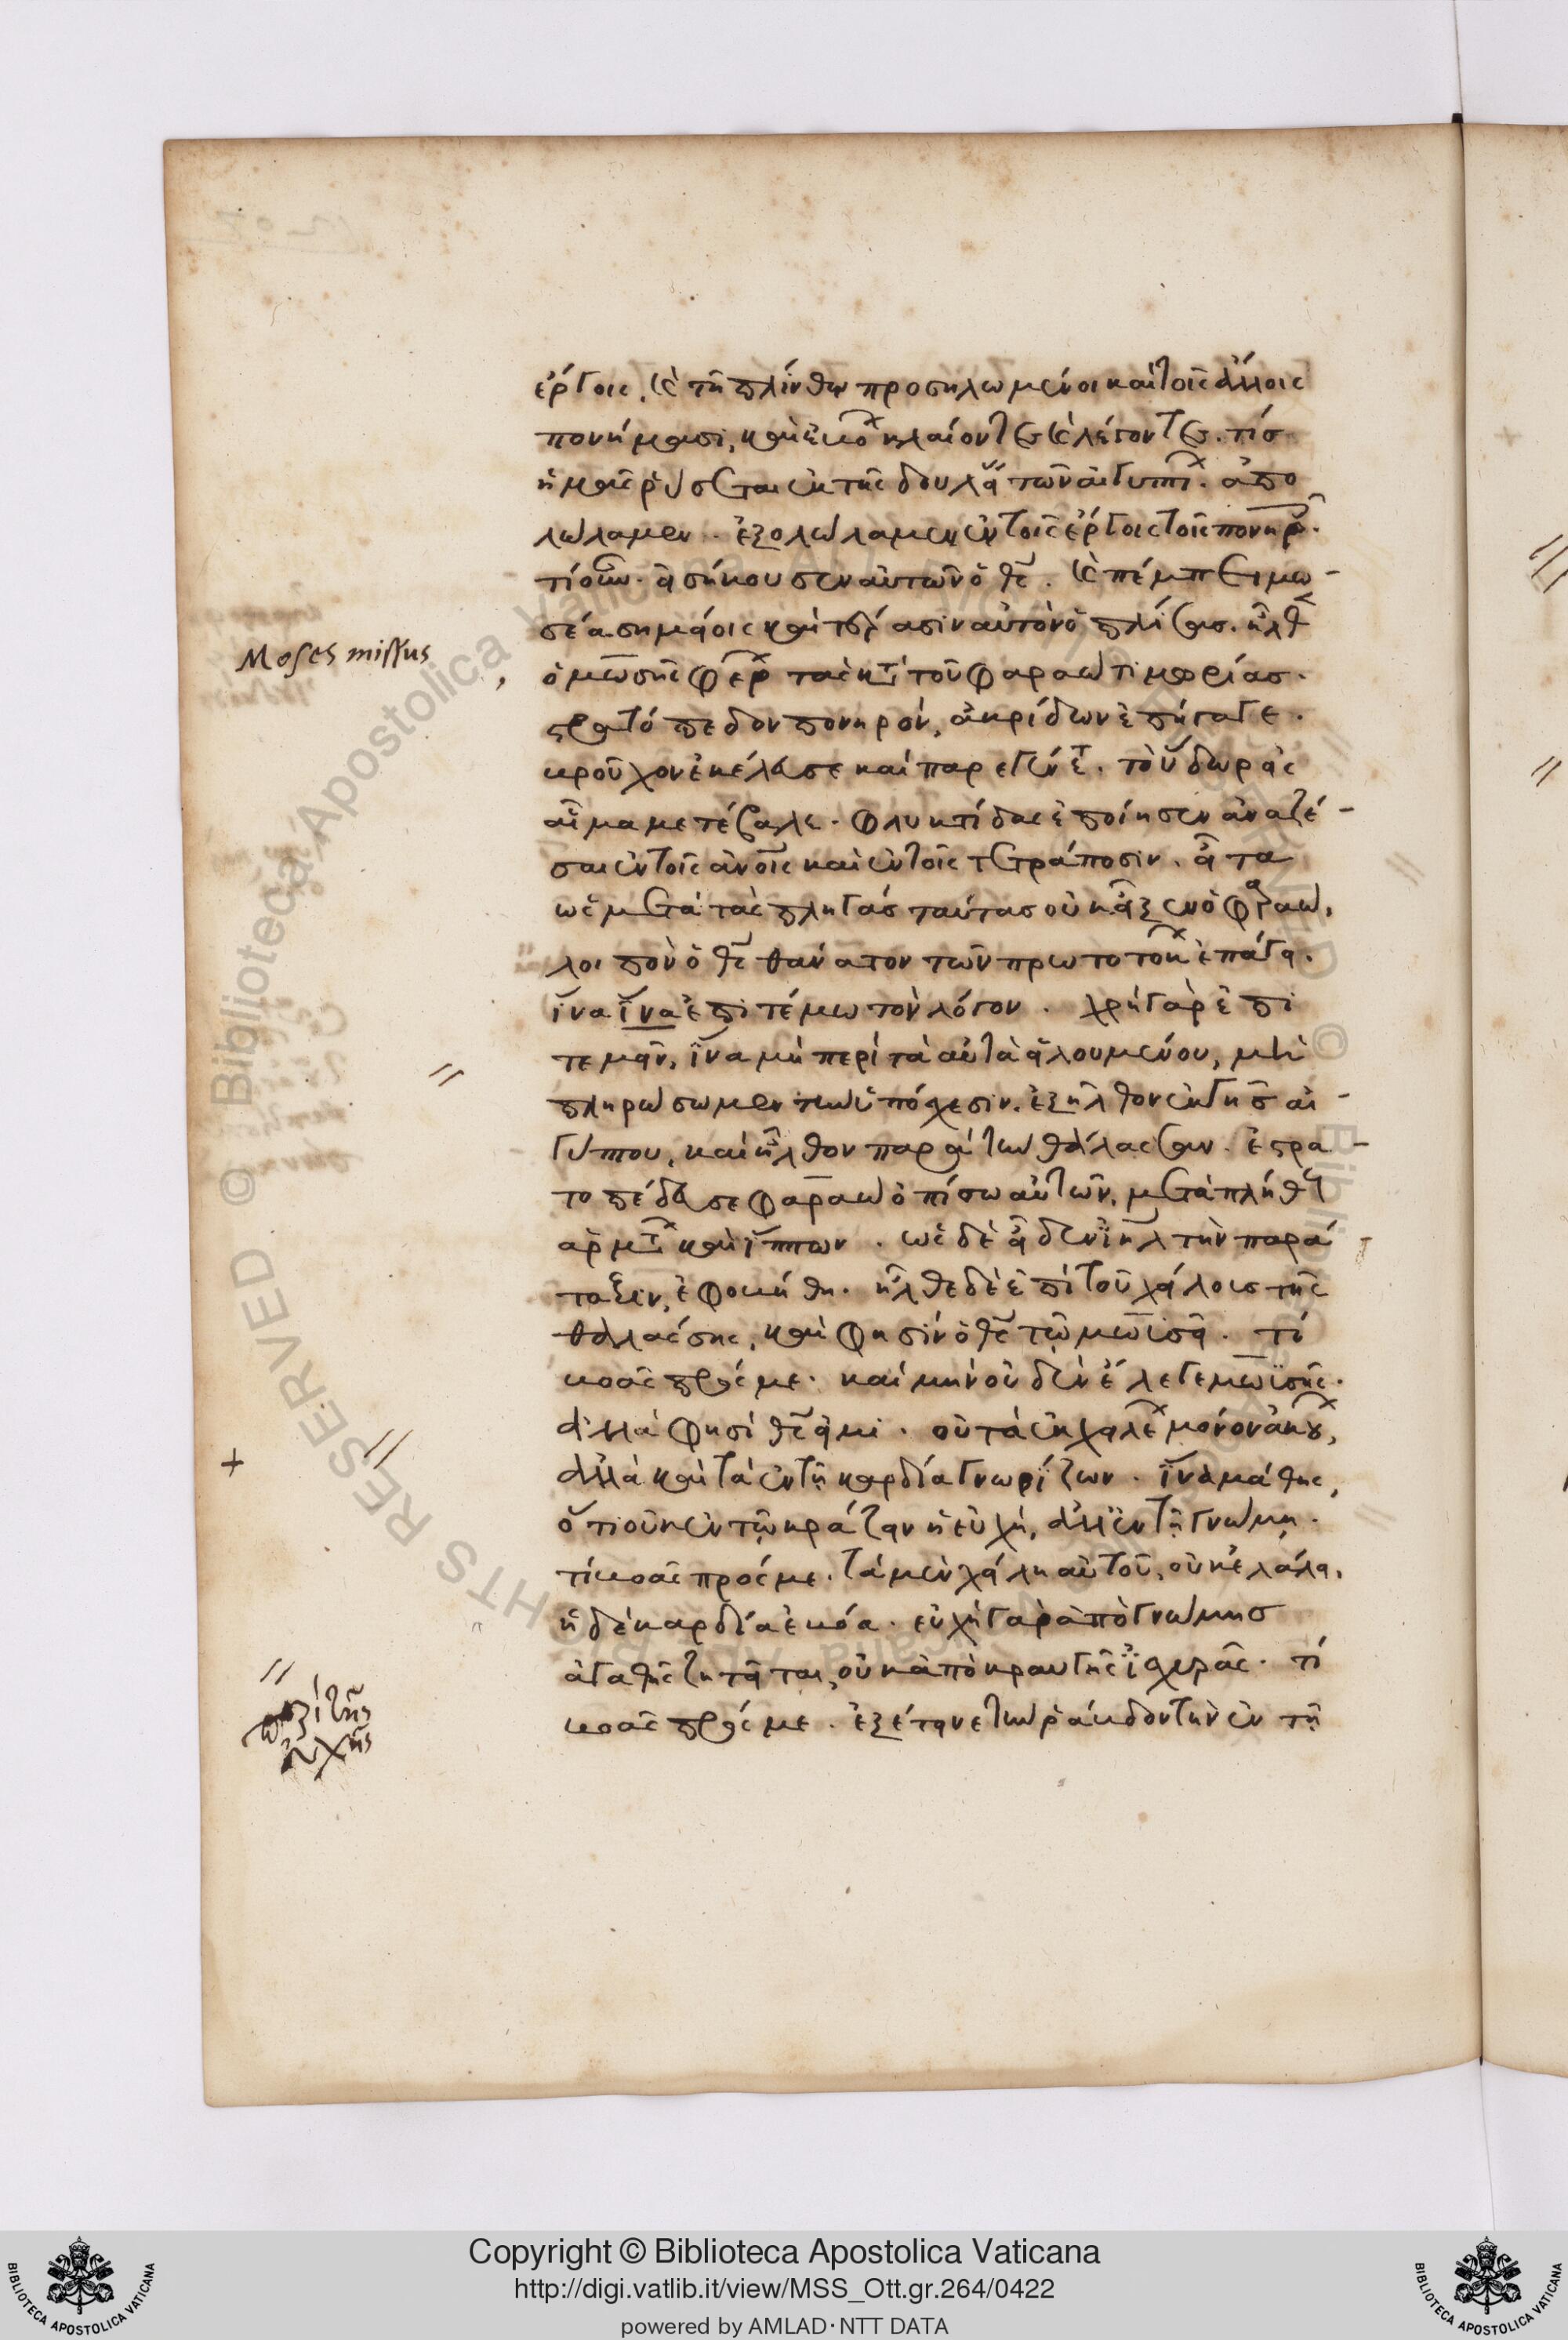 ἔργοις, καὶ τῇ πλίνθῳ προσηλωμένοι καὶ τοῖς ἄλλοις
πονήμασι, καὶ ἐβόων κλαίοντες καὶ λέγοντες. τίσ
ἡμᾶς ῥύσεται ἐκ τῆς δουλείας τῶν αἰγυπτίων. ἀπο
λώλαμεν. ἐξολώλαμεν ἐν τοῖς ἔργοις τοῖς πονηροῖς.
τί οὖν. εἰσήκουσεν αὐτῶν ὁ θς. καὶ πέμπει μω-
σέα σημείοις καὶ τέρασιν αὐτὸν ὁπλίσας. ἦλθεν
ὁ μωσῆς φέρων τὰς κατὰ τοῦ φαραὼ τιμωρίας.
στρατόπεδον πονηρόν, ἀκρίδων ἐπήγαγε.
βροῦχον ἐκέλευσε καὶ παρεγένετο. τὸ ὕδωρ εἰς
αἷμα μετέβαλε. φλυκτίδας ἐποίησεν ἀναζέ-
σαι ἐν τοῖς ἀνοις καὶ ἐν τοῖς τετράποσιν. εἶτα
ὡς μετὰ τὰς πληγὰσ ταύτασ οὐκ εἶξεν ὁ φαραω,
λοιπὸν ὁ θς θάνατον τῶν πρωτοτόκων ἐπάγει.
ἵνα ἵνα ἐπιτέμω τὸν λόγον. χρὴ γὰρ ἐπι
τεμεῖν, ἵνα μὴ περὶ τὰ αὐτὰ εἰλουμένου, μὴ
πληρώσωμεν τὴν ὑπόσχεσιν. ἐξῆλθον ἐκ γῆσ αἰ-
γύπτου, καὶ ἦλθον παρὰ τὴν θάλασσαν. ἐστρα-
τοπέδευσε φαραὼ ὀπίσω αὐτῶν, μετὰ πλήθους
ἁρμάτων καὶ ἵππων. ὡς δὲ εἶδεν ιηλ τὴν παρά
ταξιν, ἐφοβήθη. ἦλθε δὲ ἐπὶ τοῦ χείλους τῆς
θαλάσσης, καὶ φησὶν ὁ θς τῷ μωϊσῇ. τί
βοᾷς πρός με. καὶ μὴν οὐδὲν ἔλεγε μωϊσῆς.
ἀλλά φησι θς εἰμι. οὐ τὰ ἐκ χειλέων μόνον ἀκούων,
ἀλλὰ καὶ τὰ ἐν τῇ καρδίᾳ γνωρίζων. ἵνα μάθῃς,
ὅτι οὐκ ἐν τῷ κράζειν ἡ εὐχή, ἀλλ' ἐν τῇ γνώμῃ.
τί βοᾷς πρός με. τὰ μὲν χείλη αὐτοῦ, οὐκ ἐλάλει,
ἡ δὲ καρδία ἐβόα. εὐχὴ γὰρ ἀπὸ γνώμησ
ἀγαθῆς ζητεῖται, οὐκ ἀπὸ κραυγῆς ἰσχυρᾶς. τί
βοᾷς πρός με. ἐξέτεινε τὴν ῥάβδον τὴν ἐν τῇ
Moses missus
εὐχῆς
Copyright © Biblioteca Apostolica Vaticana
http://digi.vatlib.it/view/MSS_Ott.gr.264/0422
powered by AMLAD·NTT DATA
BIBLIOTECA APOSTOLICA VATICANA
BIBLIOTECA APOSTOLICA VATICANA